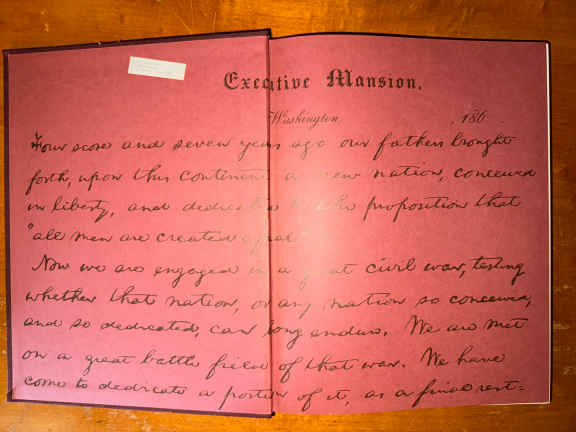 Executive Mansion,
Washington, 186
Four score and seven years ago our fathers brought
forth, upon this continent, a new nation, conceived
in liberty, and dedicated to the proposition that
"all men are created equal"
Now we are engaged in a great civil war, testing
whether that nation, or any nation so conceived,
and so dedicated, can long endure. We are met
on a great battle field of that war. We have
come to dedicate a portion of it, as a final rest-